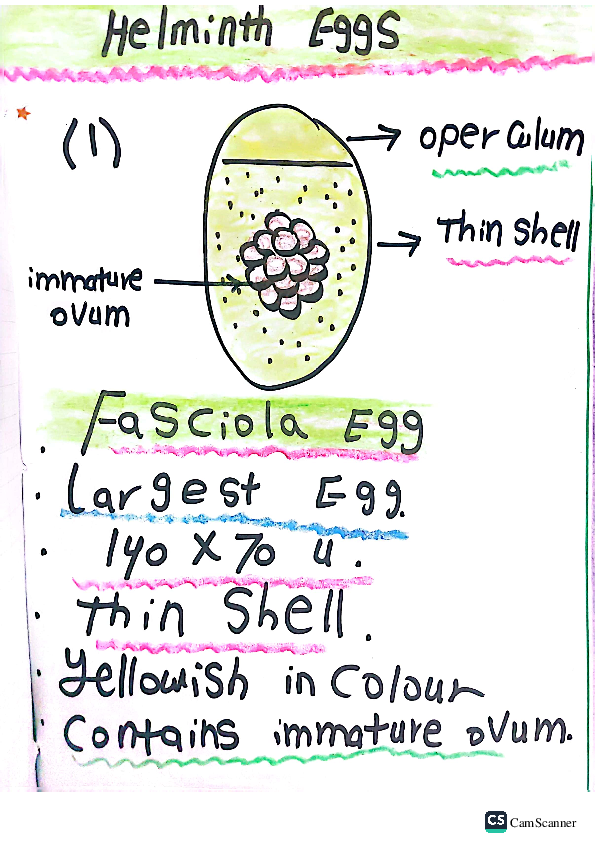 Helminth Eggs
(1)
operculum
Thin Shell
immature
ovum
Fasciola Egg
Largest Egg.
140 X 70 u.
thin Shell.
Yellowish in Colour
Contains immature ovum.
CS CamScanner